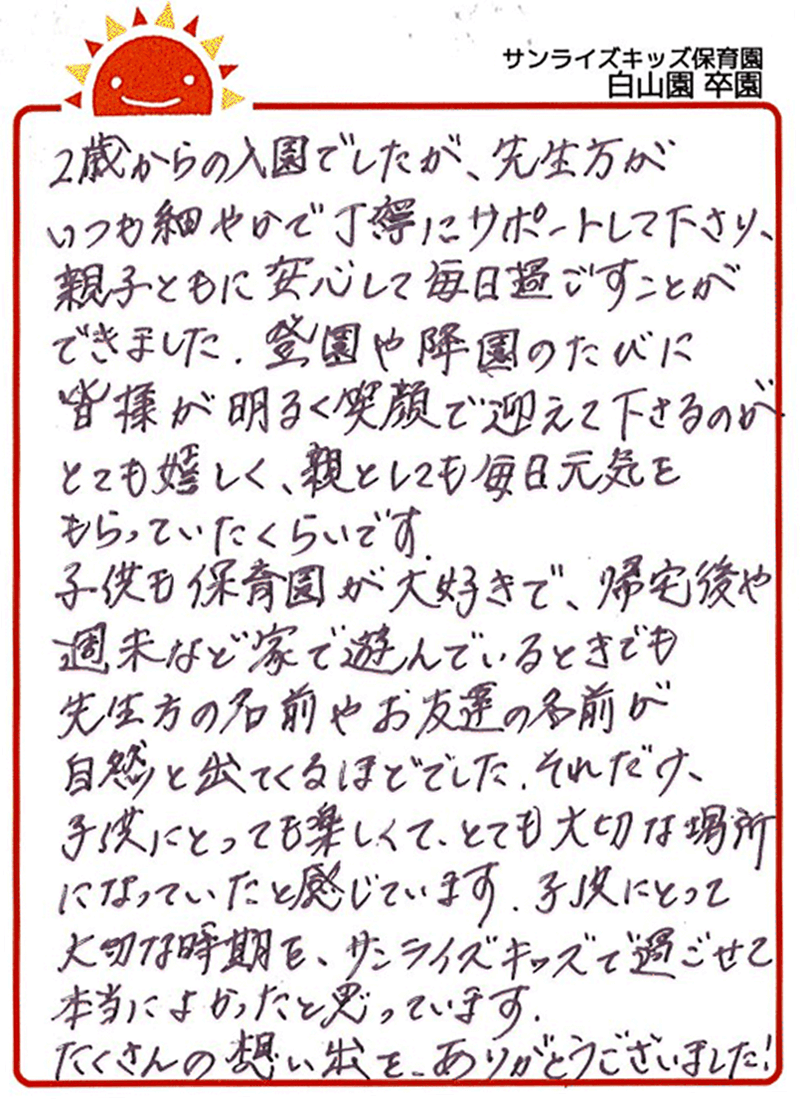 サンライズキッズ保育園
白山園 卒園
2歳からの入園でしたが、先生方が
いつも細やかで丁寧にサポートして下さり、
親子ともに安心して毎日過ごすことが
できました。登園や降園のたびに
皆様が明るく笑顔で迎えて下さるのが
とても嬉しく、親としても毎日元気を
もらっていたくらいです。
子供も保育園が大好きで、帰宅後や
週末など家で遊んでいるときでも
先生方の名前やお友達の名前が
自然と出てくるほどでした。それだけ、
子供にとっても楽しくて、とても大切な場所
になっていたと感じています。子供にとって
大切な時期を、サンライズキッズで過ごせて
本当によかったと思っています。
たくさんの想い出を、ありがとうございました!